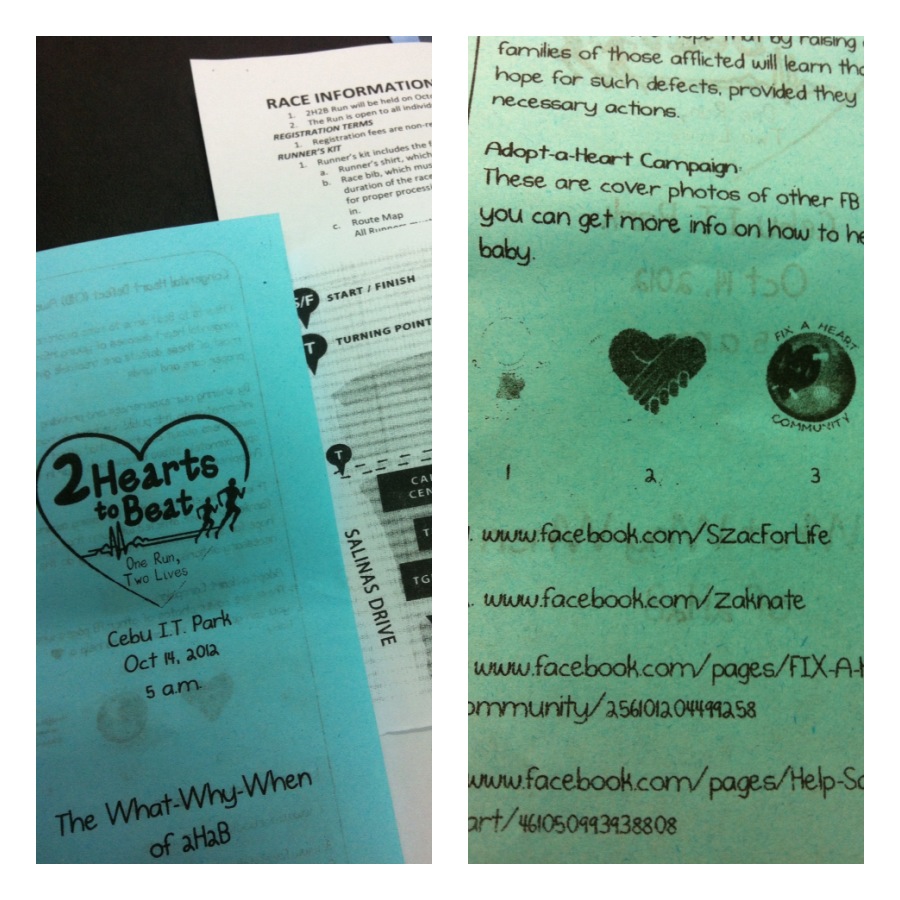 RACE INFORMATION
1. 2H2B Run will be held on
2. The Run is open to all
REGISTRATION TERMS
1. Registration fees are
RUNNER'S KIT
1. Runner's kit includes the
a. Runner's shirt, which
b. Race bib, which
duration of the race
for proper
in.
c. Route Map
All
S/F START / FINISH
T TURNING POINT
T
SALINAS DRIVE
2 Hearts
to Beat
One Run,
Two Lives
Cebu I.T. Park
Oct 14, 2012
5 a.m.
The What-Why-When
of 2H2B
that by raising
families of those afflicted will learn
hope for such defects, provided they
necessary actions.
Adopt-a-Heart Campaign:
These are cover photos of other FB
you can get more info on how to
baby.
FIX A HEART
COMMUNITY
1 2 3
www.facebook.com/SzacForLife
www.facebook.com/zaknate
www.facebook.com/pages/FIX-A-
ommunity/256101204499258
www.facebook.com/pages/Help-
art/461050993938808